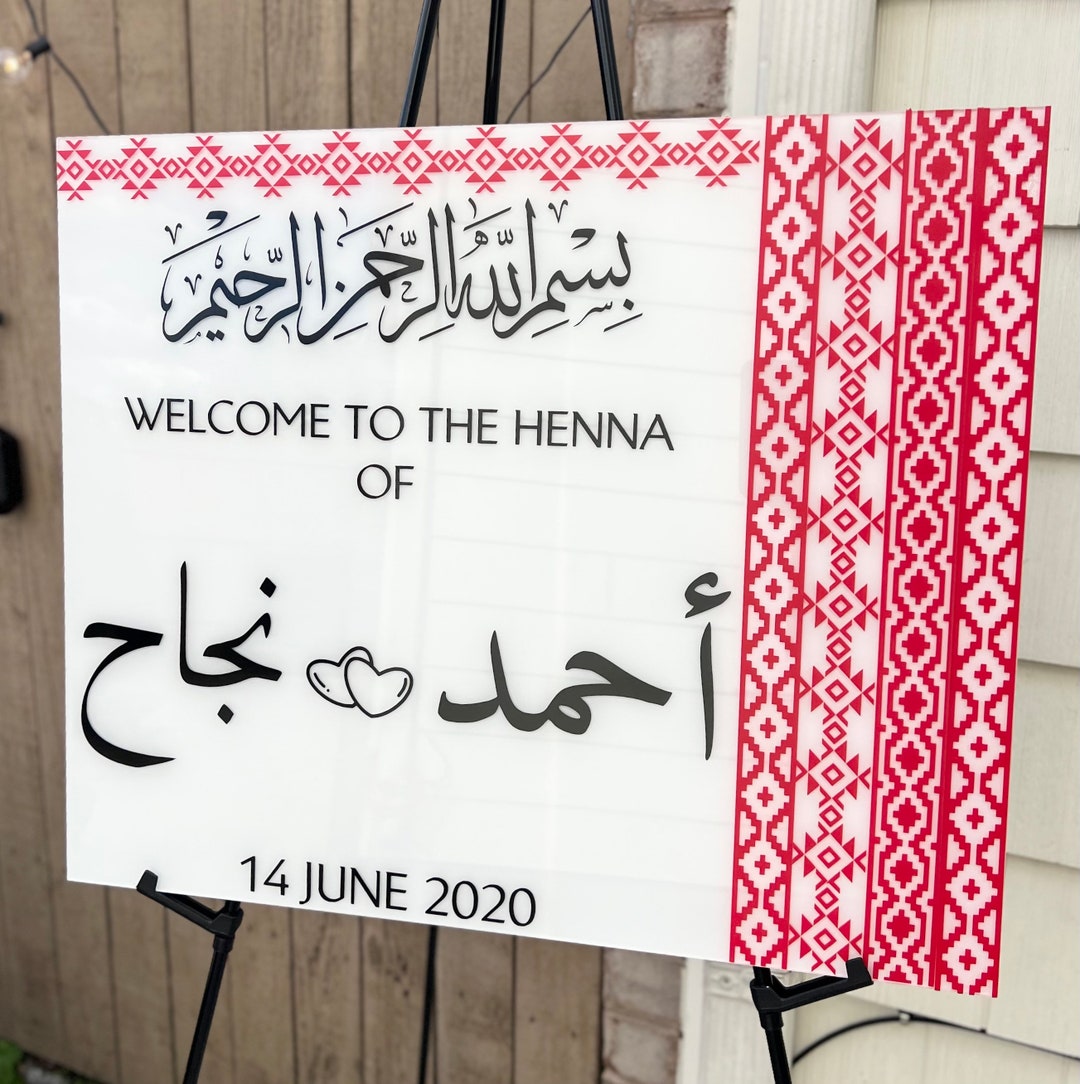 بِسْمِ اللَّهِ الرَّحْمَنِ الرَّحِيْمِ
WELCOME TO THE HENNA
OF
أحمد نجاح
14 JUNE 2020